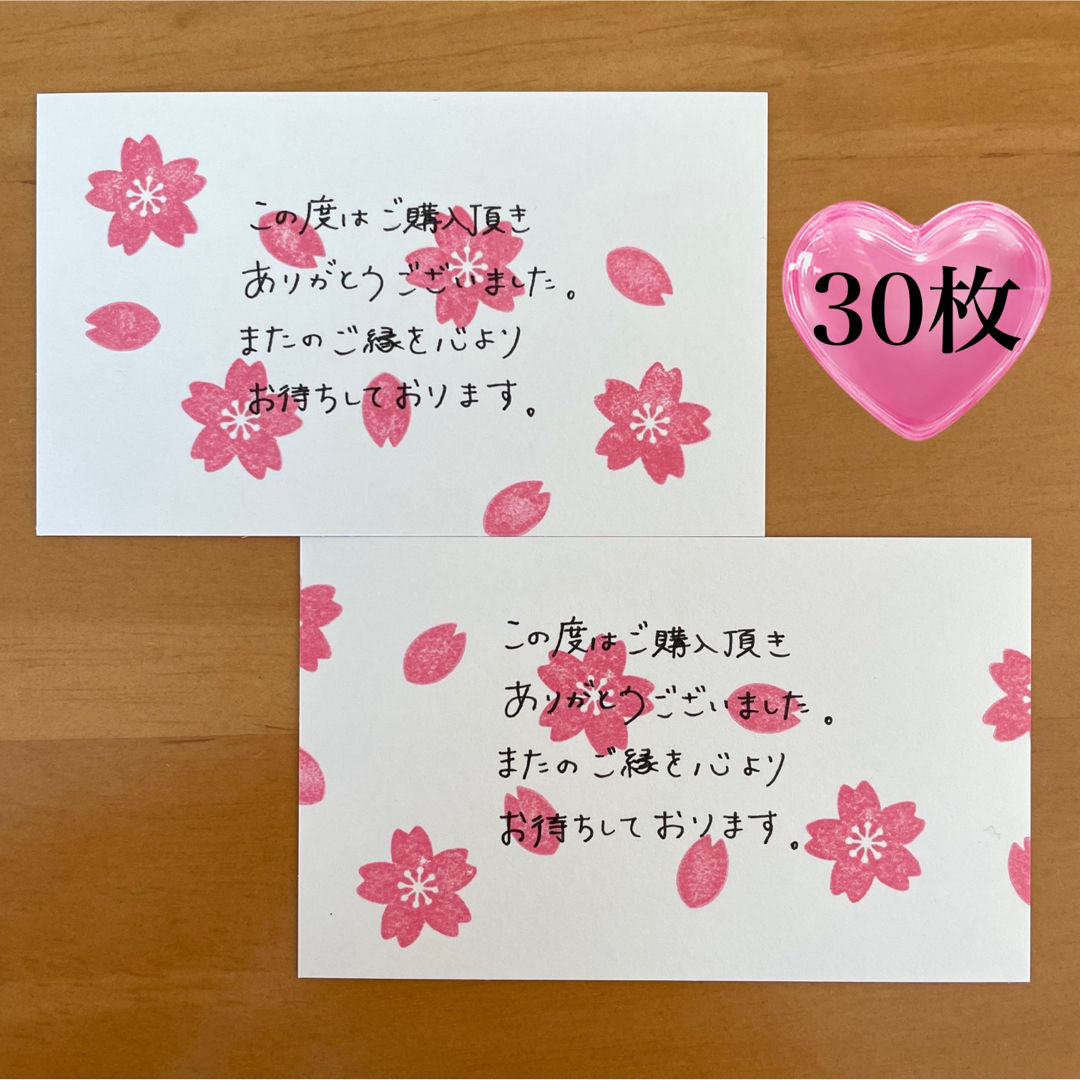 この度はご購入頂き
ありがとうございました。
またのご縁を心より
お待ちしております。
30枚
この度はご購入頂き
ありがとうございました。
またのご縁を心より
お待ちしております。